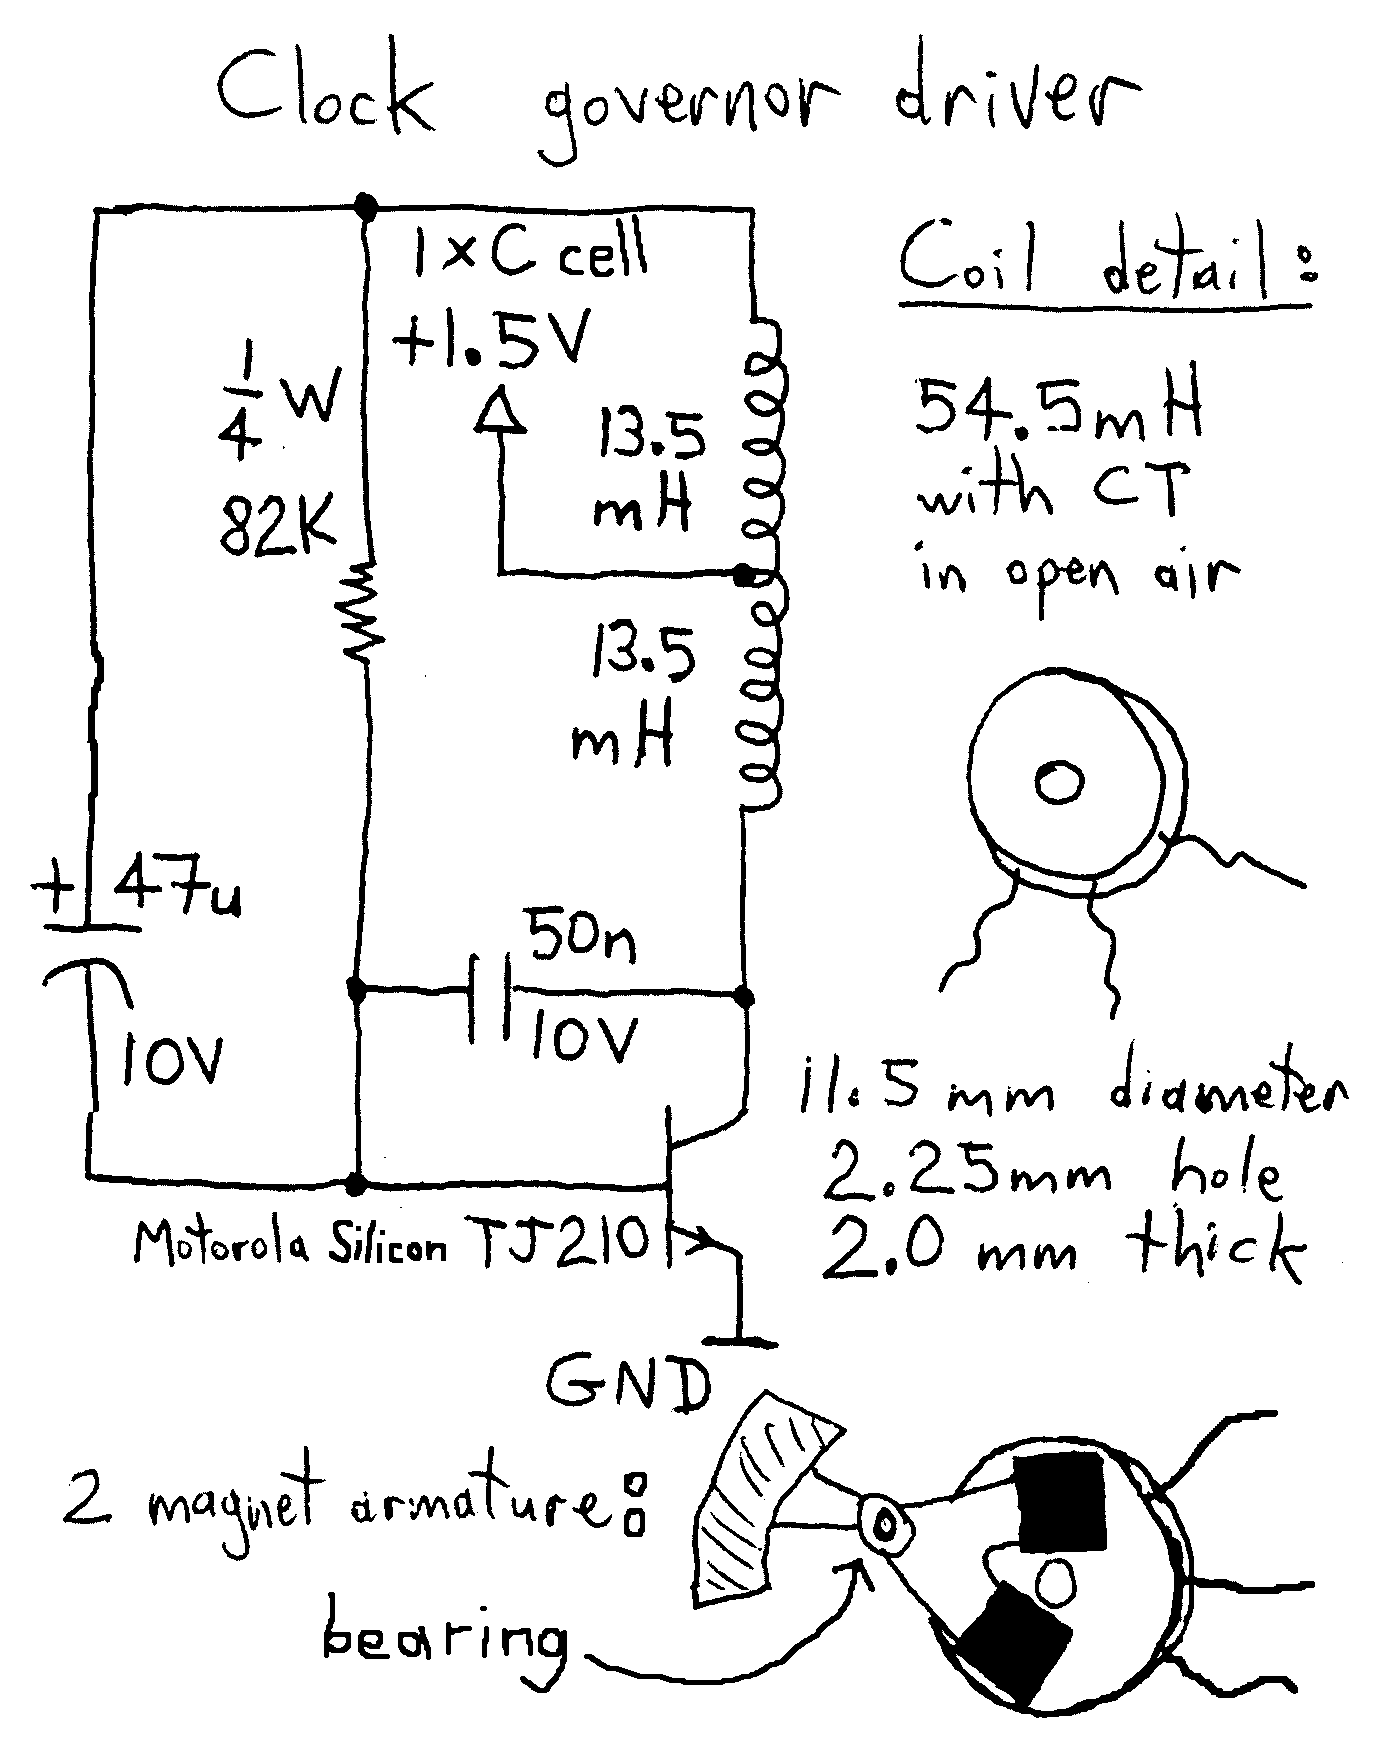 Clock governor driver
1×C cell
+1.5V
1/4 W
82K
13.5
mH
13.5
mH
+ 47u
10V
50n
10V
Motorola Silicon TJ210
GND
Coil detail:
54.5mH
with CT
in open air
11.5 mm diameter
2.25mm hole
2.0 mm thick
2 magnet armature:
bearing